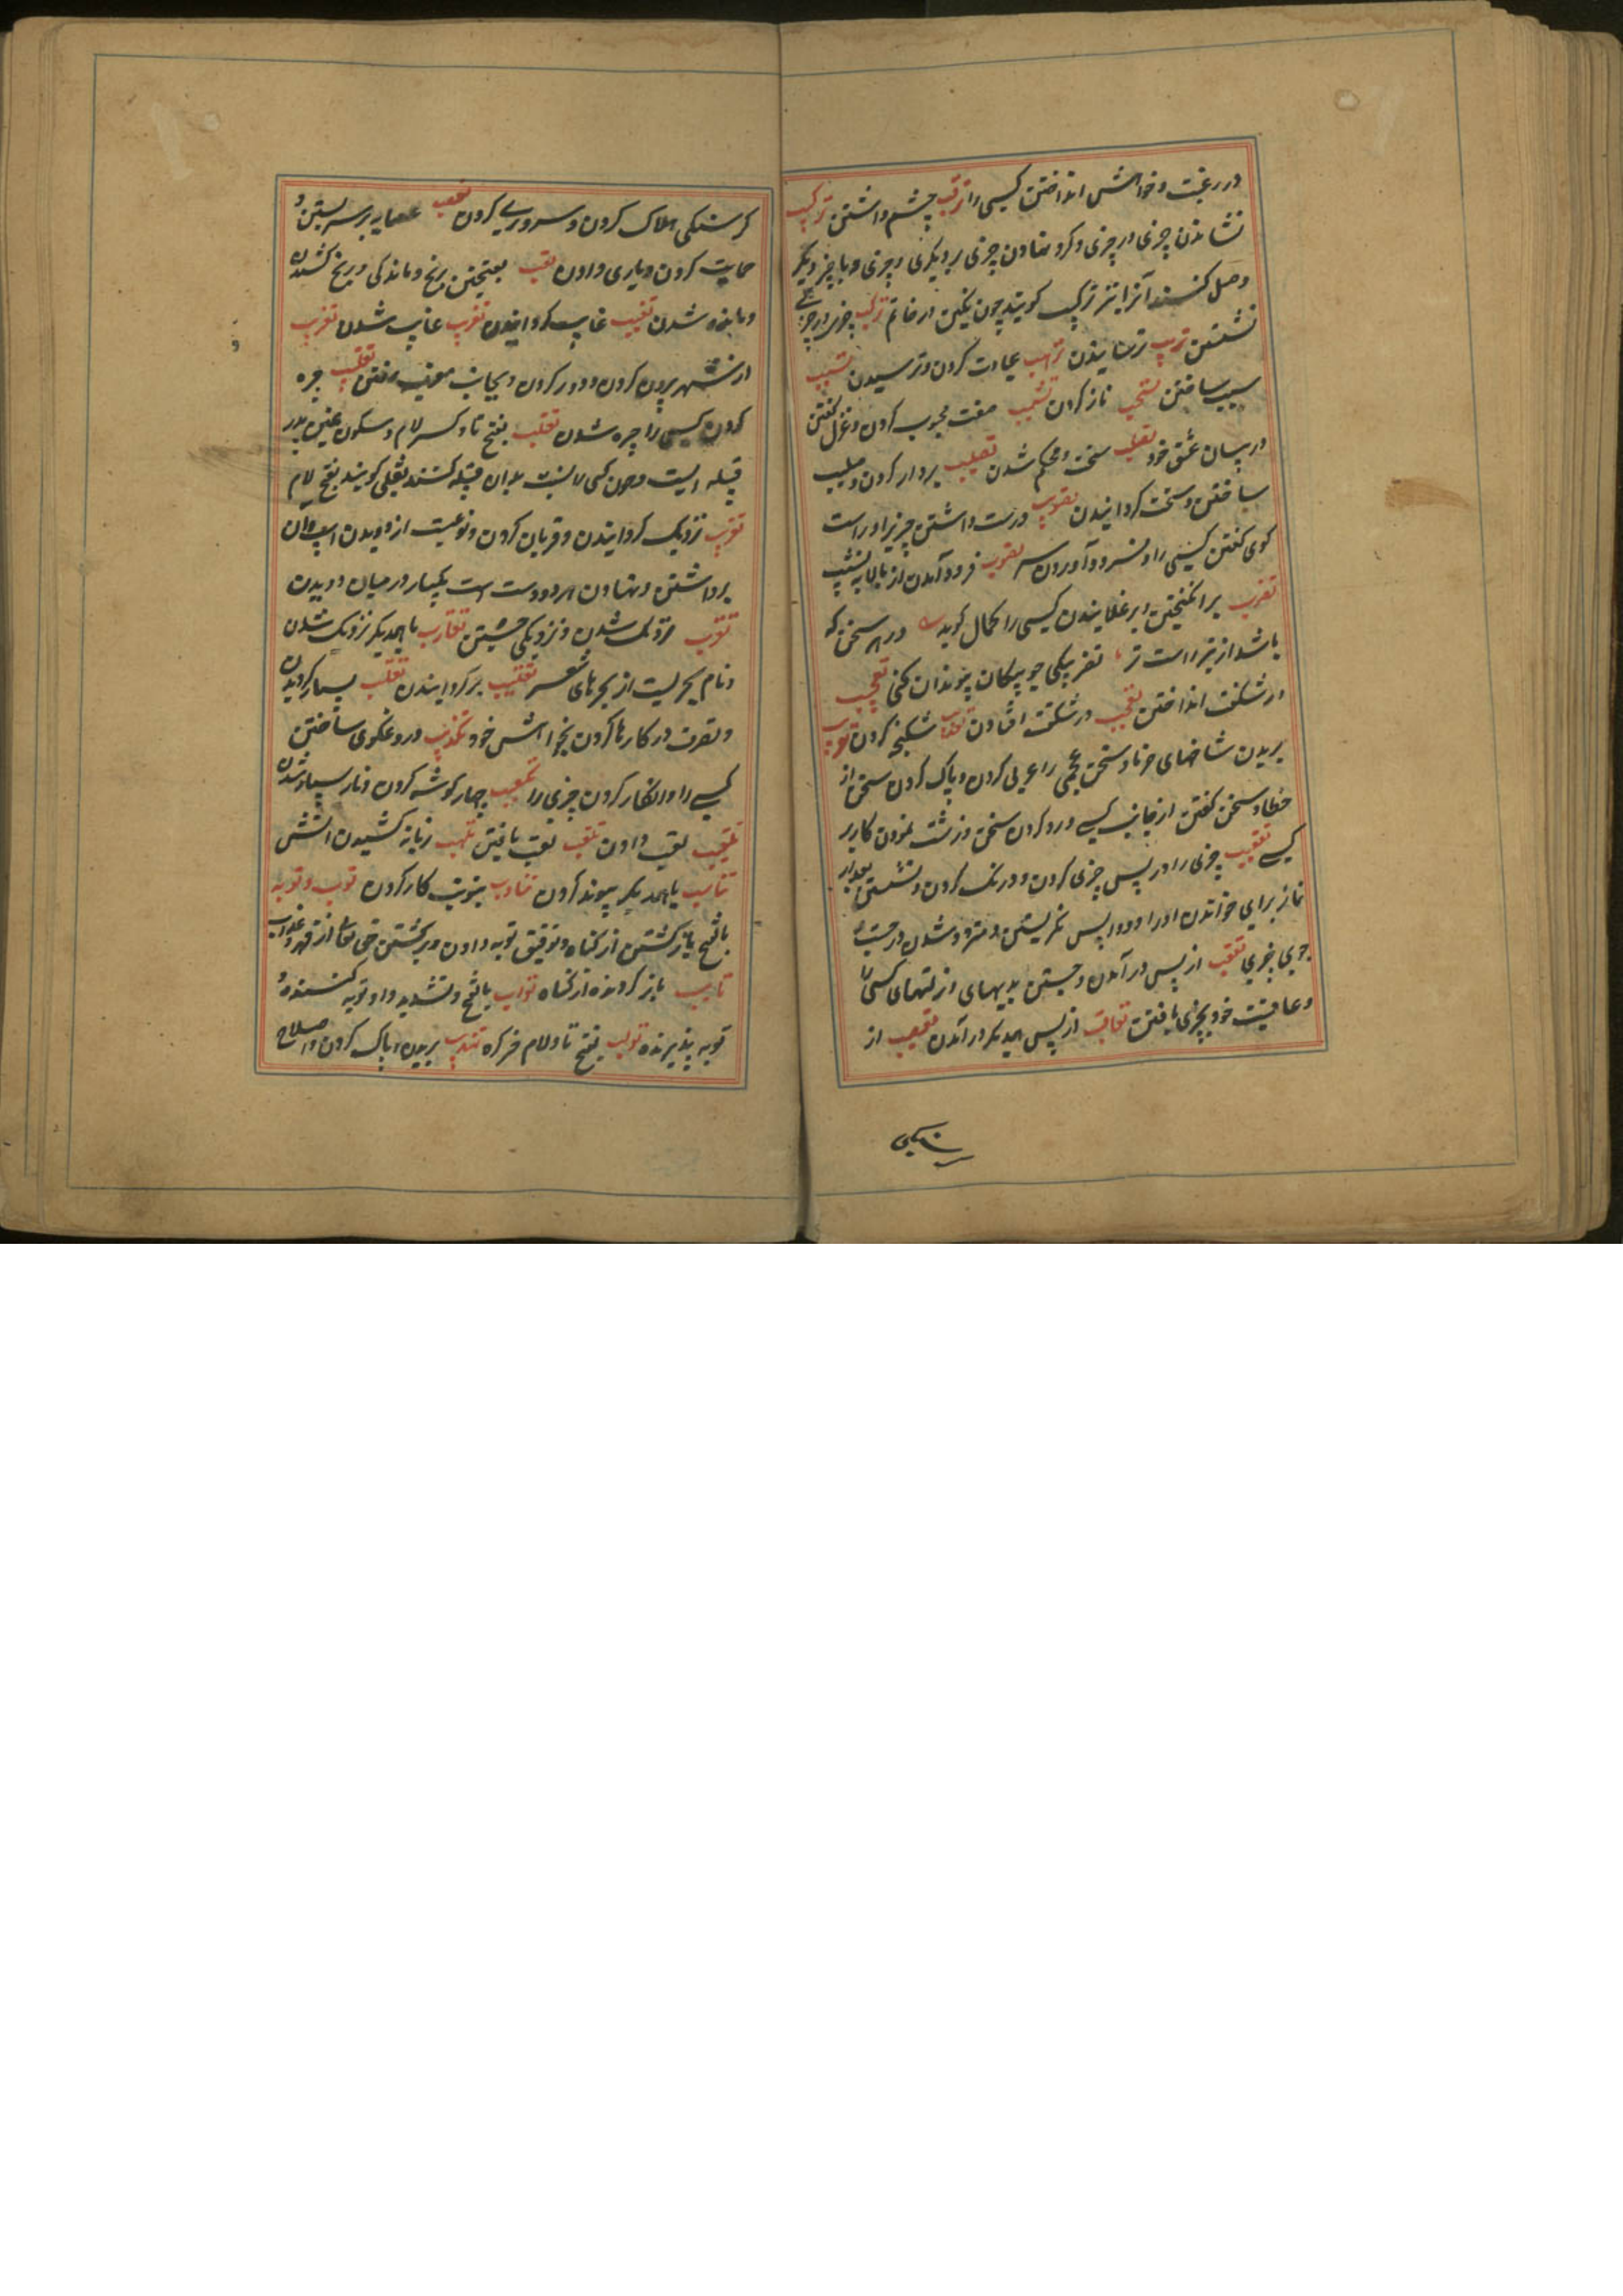 در رغبت و خواهش انداختن کسی را ترقب چشم داشتن ترکیب
نشاندن چیزی در چیزی و کرد نهادن چیزی بر دیگری و چیزی و با چیز دیگر
وصل کنند آنرا نیز ترکیب کویند چون نکین در خاتم ترکب چیزی در چیزی
نشستن ترهیب ترسانیدن ترهب عبادت کردن و ترسیدن تسبیب
سبب ساختن تسحب ناز کردن تشبیب صفت محبوب کردن و غزل کفتن
در بیان عشق خود تصلب سخت و محکم شدن تصلیب بر دار کردن و صلیب
ساختن و سخت کردانیدن تصویب درست داشتن چیزیرا و راست
کوی کفتن کسی را و فرود آوردن سر تصوب فرود آمدن از بالا به نشیب
تضریب برانکیختن و برغلانیدن کسی را کمال کوید در هر سخن که
باشد از تیر است تر تضریب کی چو پیکان پوندان کنی تعجیب
در شکفت انداختن تعجب در شکفت افتادن تعذیب شکنجه کردن تعریب
بریدن شاخهای خرما و سخن عجمی را عربی کردن و پاک کردن سخن از
خطا و سخن کفتن از جانب کسی و رد کردن سخن و زشت نمودن کار بر
کسی تعقیب چیزی را در پس چیزی کردن و درنک کردن و نشستن بعد از
نماز برای خواندن اوراد و واپس نکریستن و متردد شدن در جست
جوی چیزی تعقب از پس در آمدن و جستن بدیهای و زلتهای کسی را
و عاقبت خود بچیزی یافتن تعاقب از پس همدیکر در آمدن تعصیب از
کرسنکی
کرسنکی هلاک کردن و سروری کردن تعصب عصابه بر سر بستن و
حمایت کردن و یاری دادن تعب بفتحتین رنج و ماندکی و رنج کشیدن
و مانده شدن تغییب غایب کردانیدن تغرب غایب شدن تغریب
از شهر بیرون کردن و دور کردن و بجانب مغرب رفتن تغلیب چیره
کردن کسی را چیره شدن تغلب بفتح تا و کسر لام و سکون غین پدر
قبیله ایست و چون کسی را نسبت بدان قبیله کنند تغلبی کویند بفتح لام
تقریب نزدیک کردانیدن و قربان کردن و نوعیست از دویدن اسپ و آن
برداشتن و نهادن هر دو دست است یکبار در میان دویدن
تقرب نزدیک شدن و نزدیکی جستن تقارب با همدیکر نزدیک شدن
و نام بحریست از بحرهای شعر تقلیب برکردانیدن تقلب بسیار کردیدن
و تصرف در کارها کردن بخواهش خود تکذیب دروغکوی ساختن
کسی را و انکار کردن چیزی را تکعیب چهار کوشه کردن و نار پستان شدن
تلقیب لقب دادن تلقب لقب یافتن تلهب زبانه کشیدن آتش
تناسب با همدیکر پیوند کردن تناوب بنوبت کار کردن توب و توبه
بالفتح بازکشتن از کناه و توفیق توبه دادن و برکشتن حق تعالی از قهر و عذاب
تایب باز کردنده از کناه تواب بالفتح و تشدید واو توبه کننده و
توبه پذیرنده تولب بفتح تا و لام خر کره تهذیب بریدن و پاک کردن و اصلاح